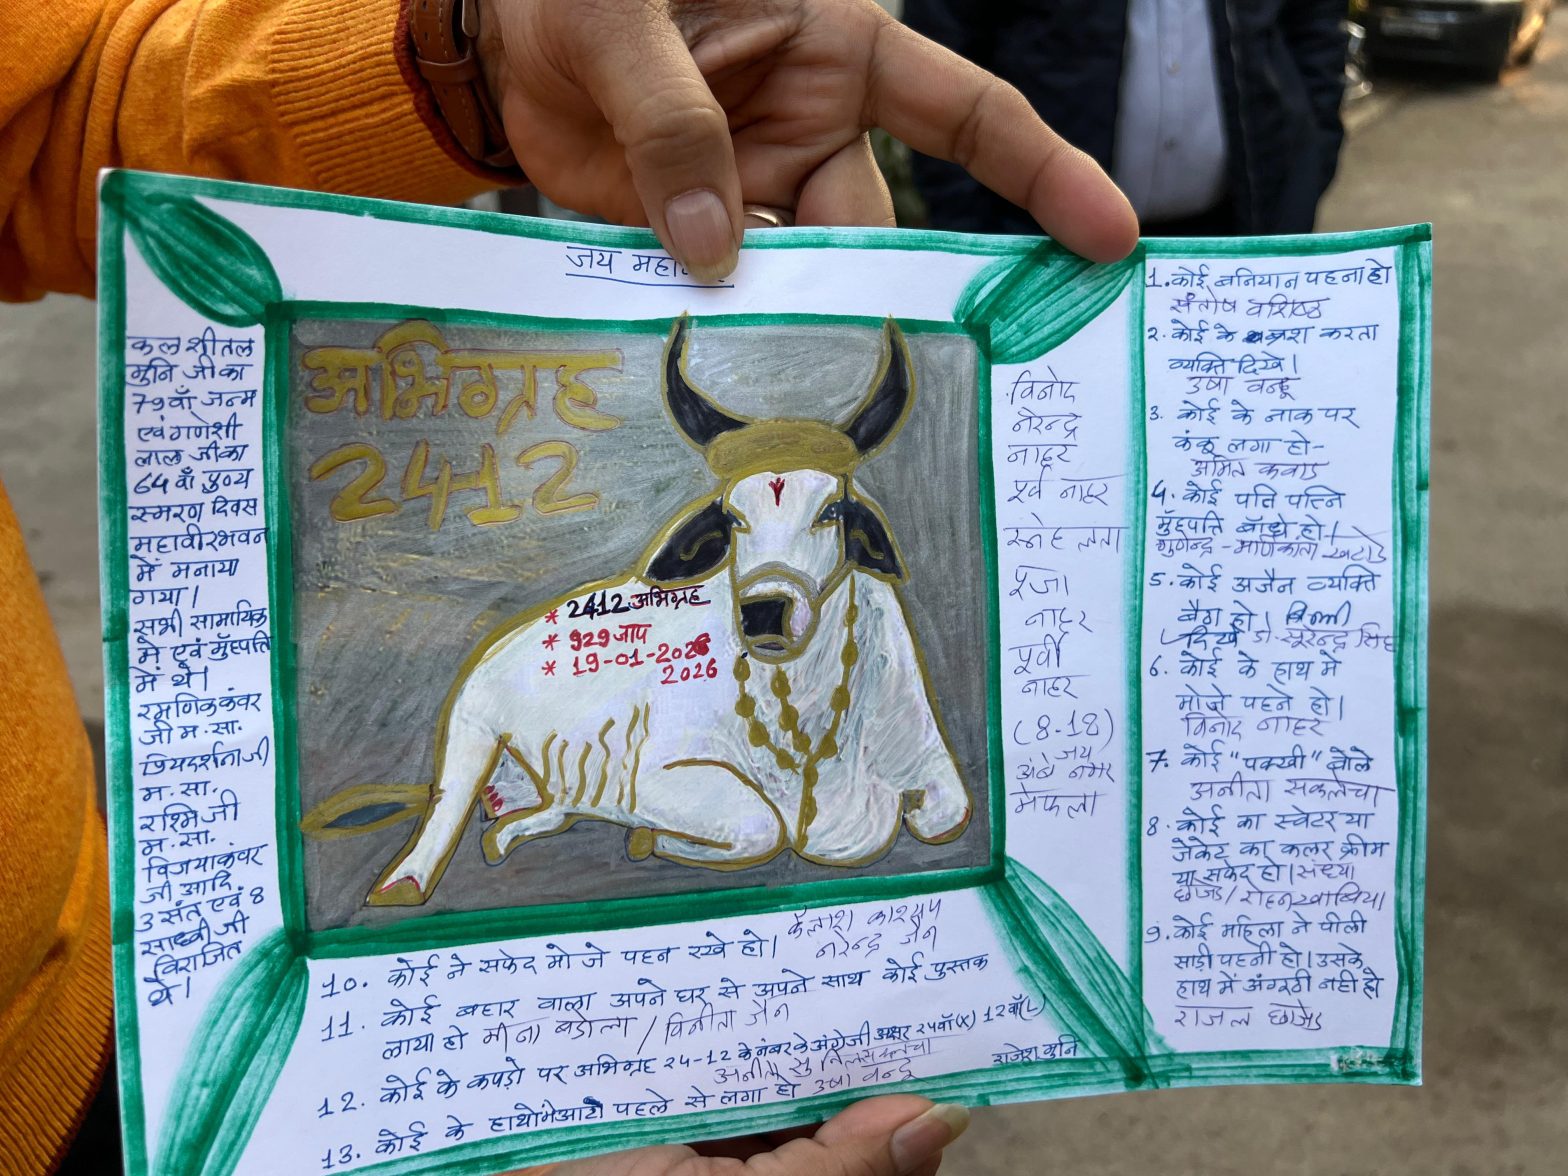 जय
अभिग्रह
2412
* 2412 अभिग्रह
* 929 जाप
* 19-01-202
2026
कल शीतल
मुनि जी का
79 वाँ जन्म
एवं गणेशी
लाल जी का
64 वाँ पुण्य
स्मरण दिवस
महावीर भवन
में मनाया
गया।
सभी सामायिक
में एवं मुँहपति
में थे।
रमणिककंवर
जी म. सा.
प्रियदर्शनाजी
म. सा.
रश्मि जी
म. सा.
विजयाकंवर
जी आदि
3 संत एवं 8
साध्वी जी
विराजित
थे।
विनोद
नरेन्द्र
नाहर
पूर्व नाहर
स्नेह लता
पूजा
नाहर
पूर्वी
नाहर
(8-18)
जय
अंबे नगर
1. कोई बनियान पहना हो
संतोष वशिष्ठ
2. कोई के ब्रश करता
व्यक्ति दिखे।
उषा चन्डू
3. कोई के नाक पर
कंकू लगा हो-
अमित
4. कोई पति पत्नि
मुँहपति बाँधे हो।
5. कोई अजैन व्यक्ति
बैठा हो।
डॉ. सुरेन्द्र सिंह
6. कोई के हाथ में
मोजे पहने हो।
विनोद नाहर
7. कोई "पक्खी" बोले
अनीता सकलेचा
8. कोई का स्वेटर या
जैकेट का कलर क्रीम
या सफेद हो। संध्या
9. कोई महिला ने पीली
साड़ी पहनी हो। उसके
हाथ में अंगूठी नहीं हो
राजल छाजेड़
10. कोई ने सफेद मोजे पहन रखे हो। कैलाश काश्यप
नरेन्द्र जैन
11. कोई बहार वाला अपने घर से अपने साथ कोई पुस्तक
लाया हो मीना बडोला / विनीता जैन
12. कोई के कपड़ो पर अभिग्रह 24-12 के नंबर के अंग्रेजी अक्षर 24वाँ (X) 12वाँ (L)
राजेश मुनि
13. कोई के हाथोंमेंआटा पहले से लगा हो उषा चन्डू